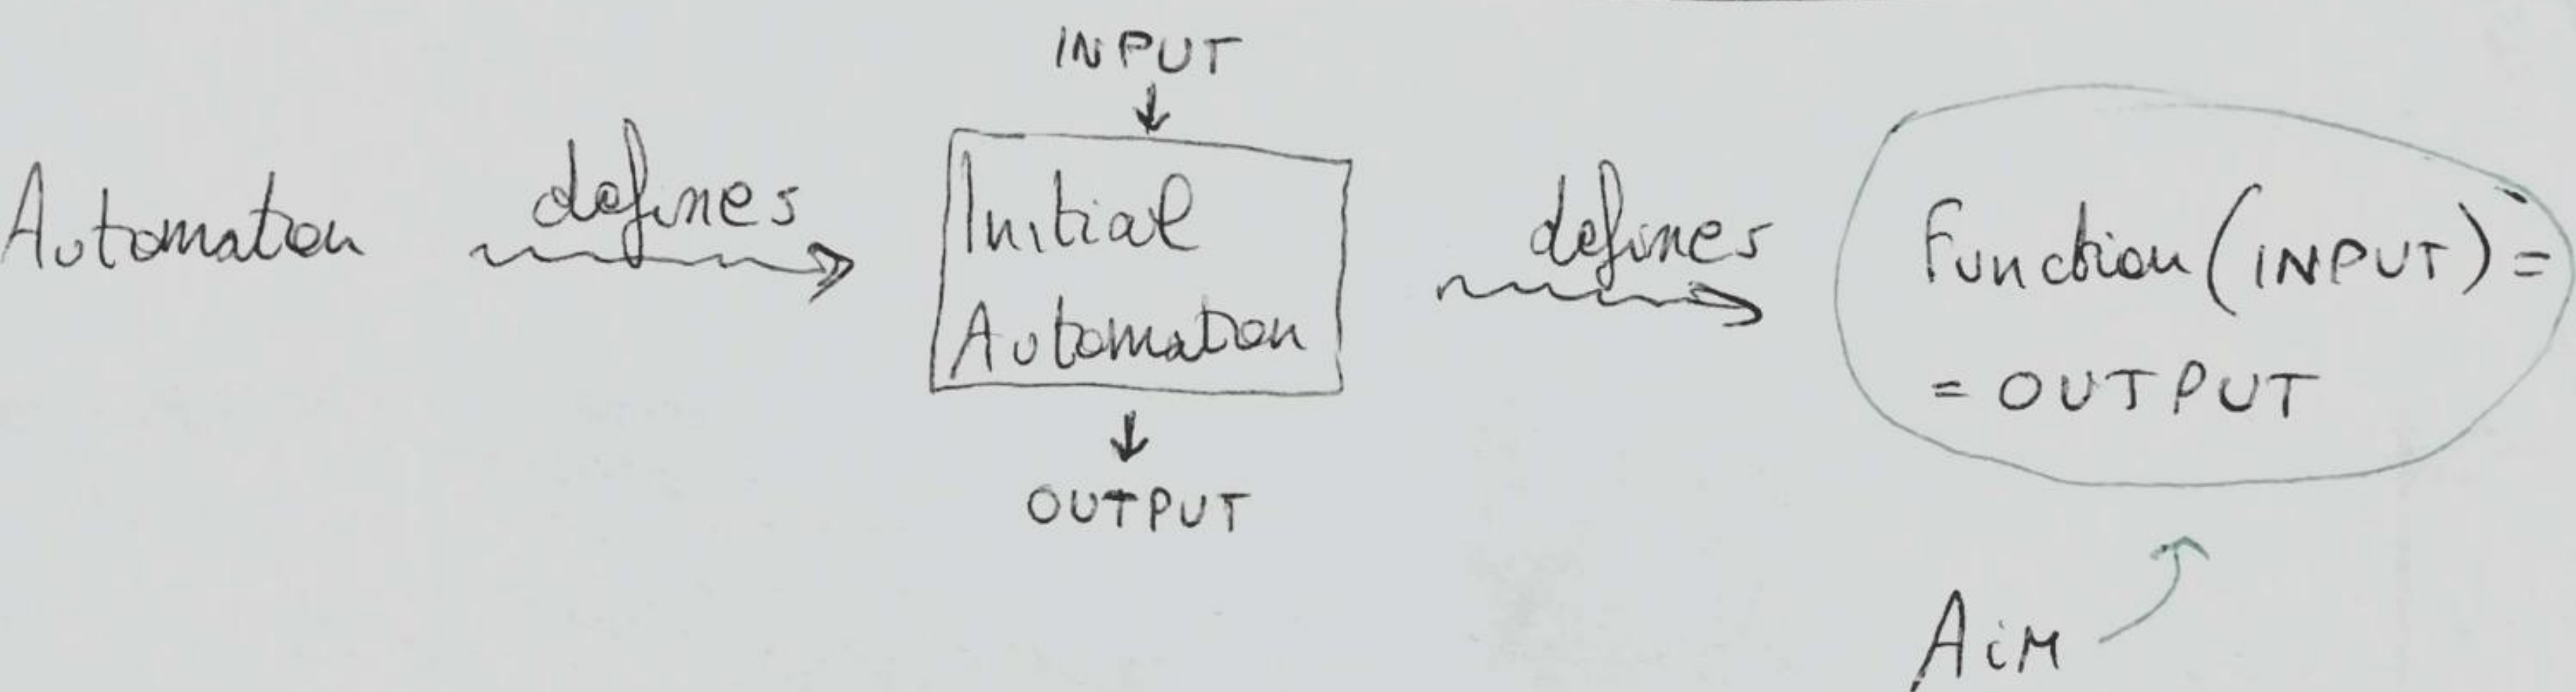 INPUT
Automation
defines
Initial
Automation
defines
Function (INPUT) =
= OUTPUT
OUTPUT
AiM